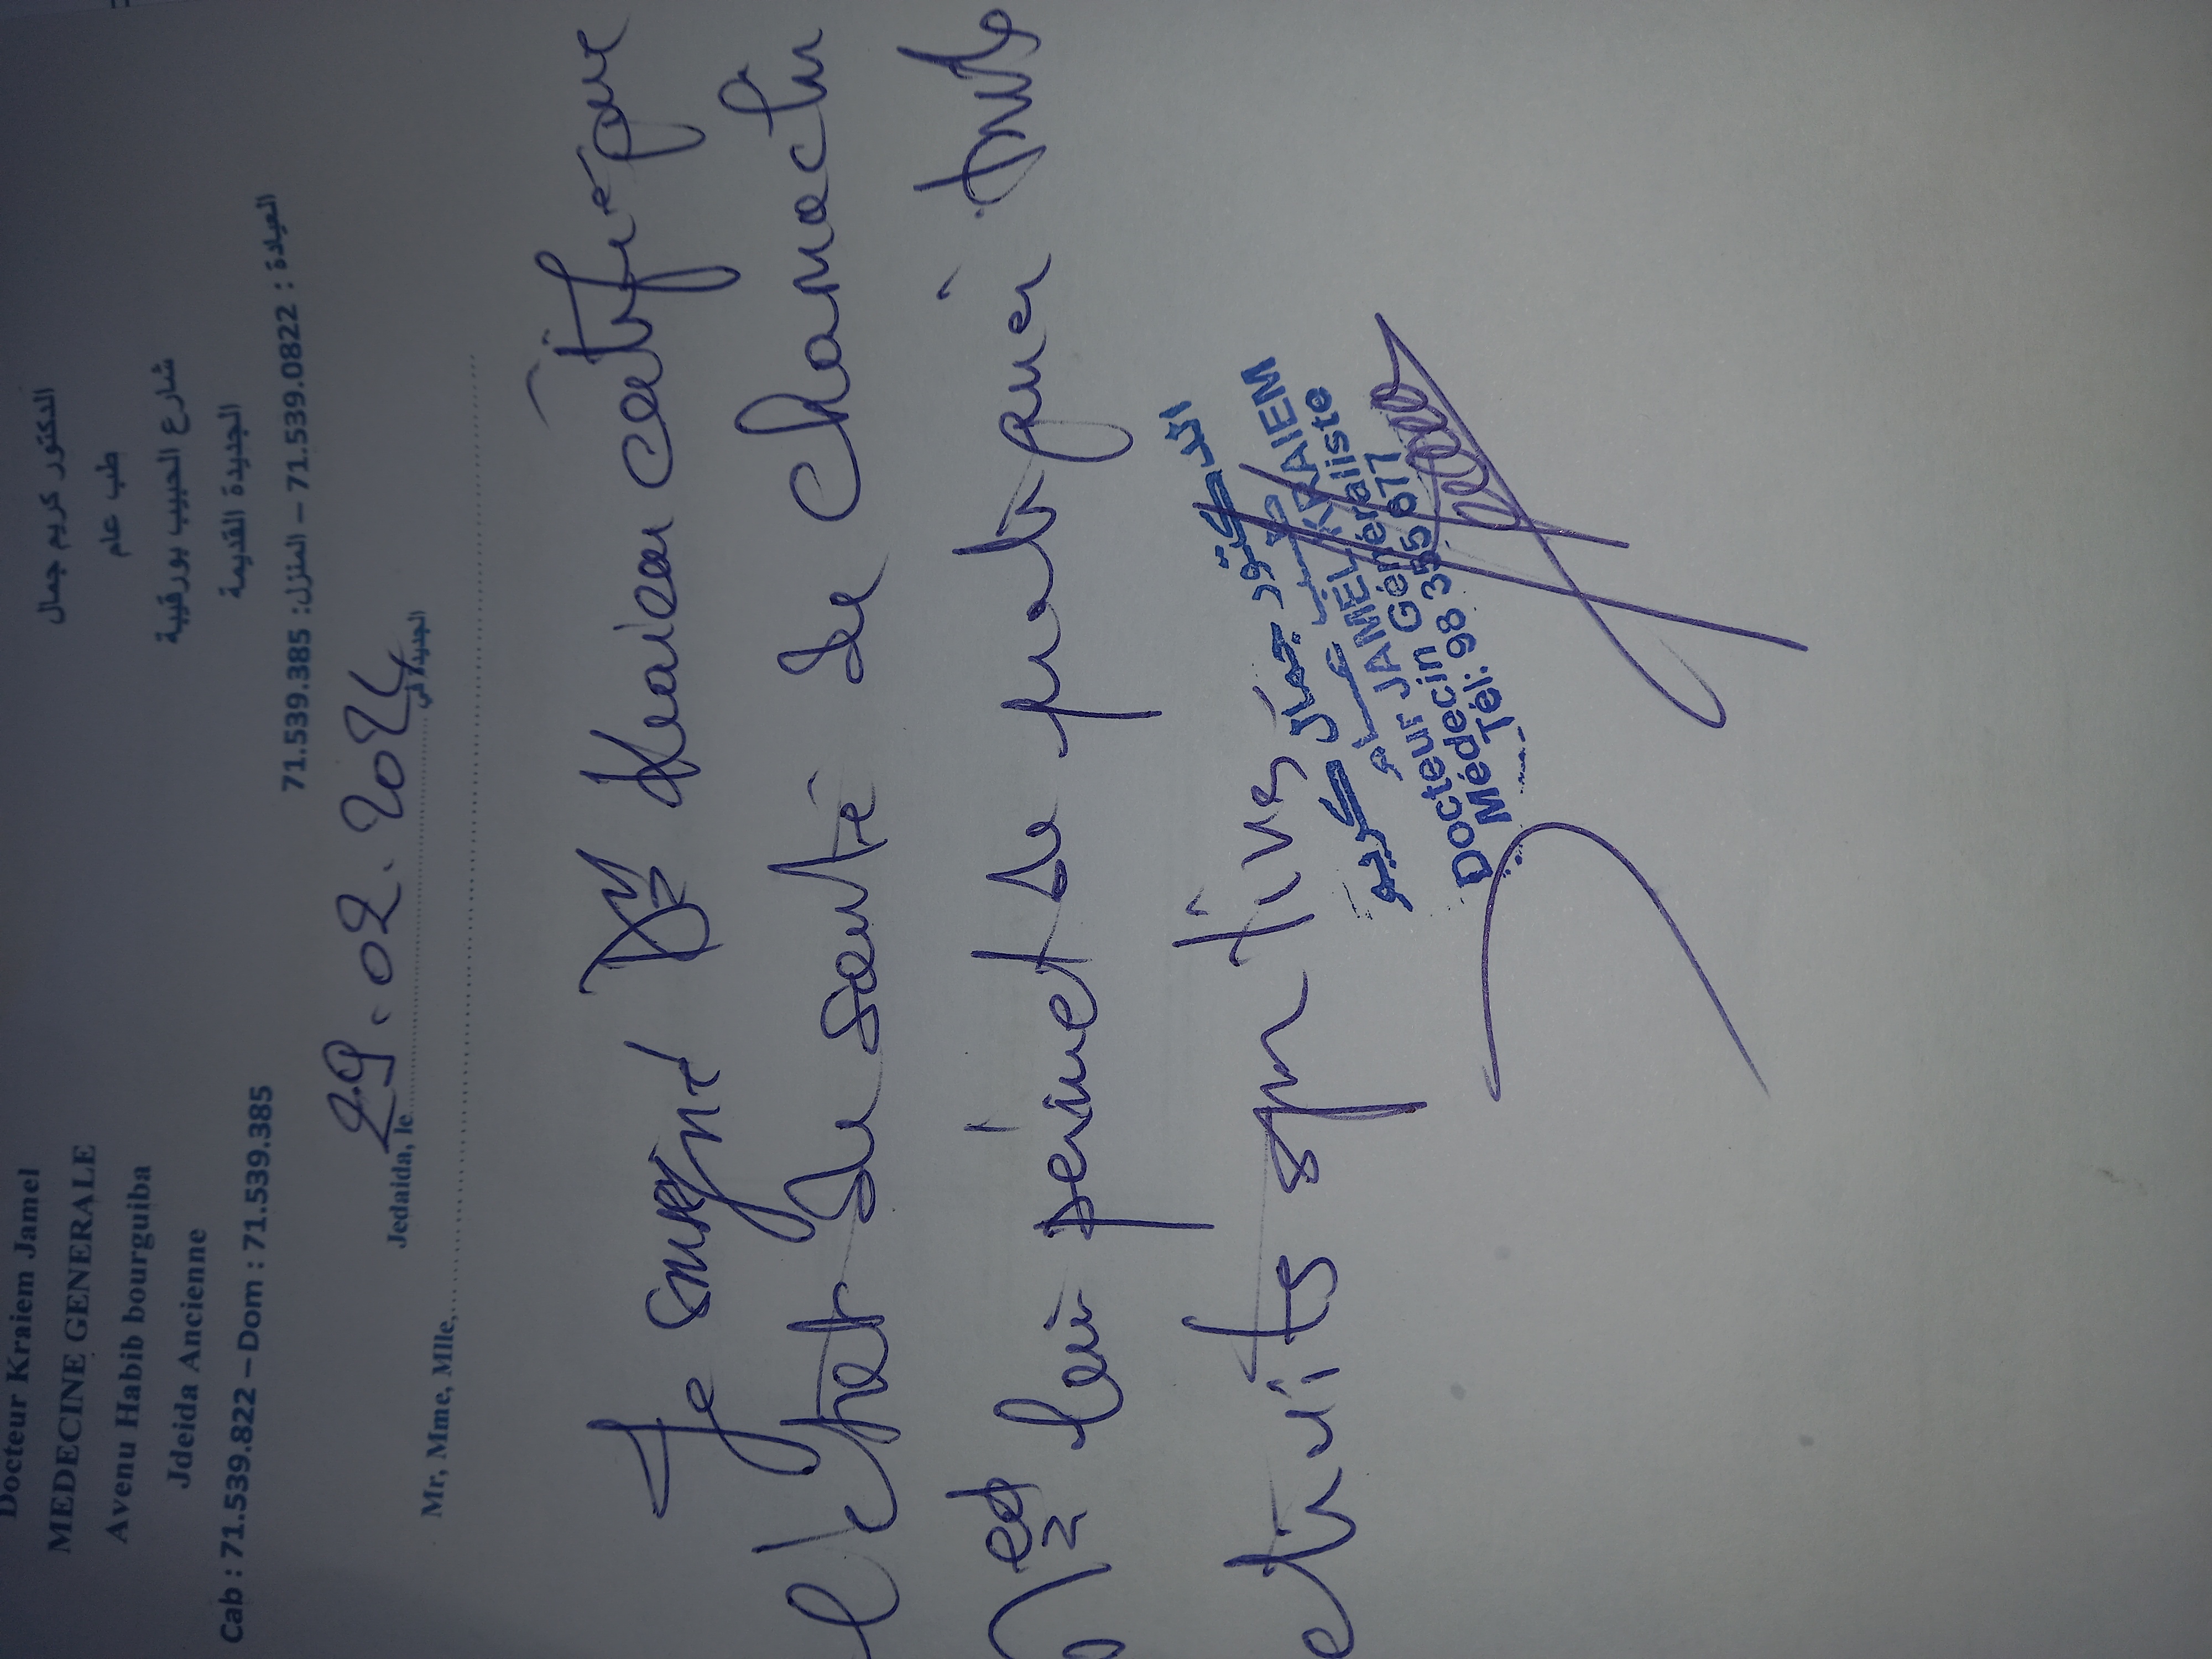 Docteur Kraiem Jamel
MEDECINE GENERALE
Avenu Habib bourguiba
Jdeida Ancienne
Cab : 71.539.822 – Dom : 71.539.385
الدكتور كريم جمال
طب عام
شارع الحبيب بورقيبة
الجديدة القديمة
العيادة : 71.539.0822 – المنزل: 71.539.385
Jedaida, le 29.02.2024 الجديدة في
Mr, Mme, Mlle,
Je soussigné Dr Kraiem certifie que
l'état de santé de
lui permet de pratiquer toute
activités sportives
الدكتور جمال كريم
طب عام
Docteur JAMEL KRAIEM
Médecin Généraliste
Tél: 98 355 677